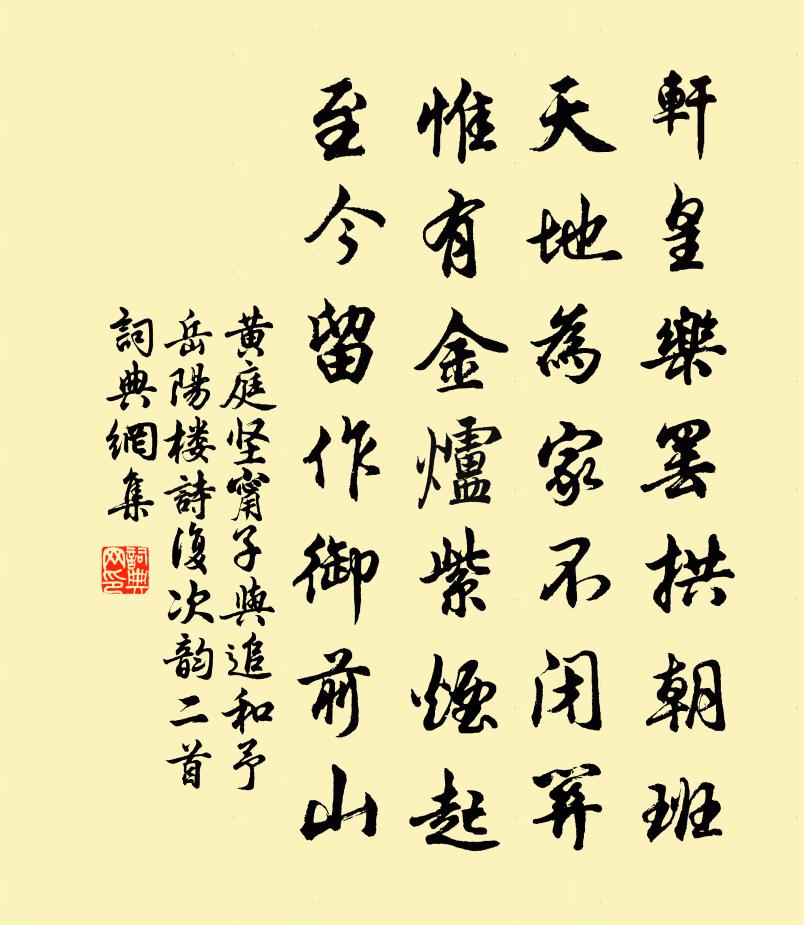 軒皇樂罢拱朝班
天地為家不闭關
惟有金爐紫煙起
至今留作御前山
黄庭坚甯子與追和予
岳陽楼詩復次韵二首
詞典網集
詞典网印